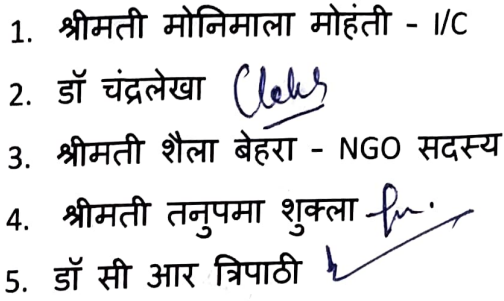 1. श्रीमती मोनिमाला मोहंती - I/C
2. डॉ चंद्रलेखा
3. श्रीमती शैला बेहरा - NGO सदस्य
4. श्रीमती तनुपमा शुक्ला
5. डॉ सी आर त्रिपाठी